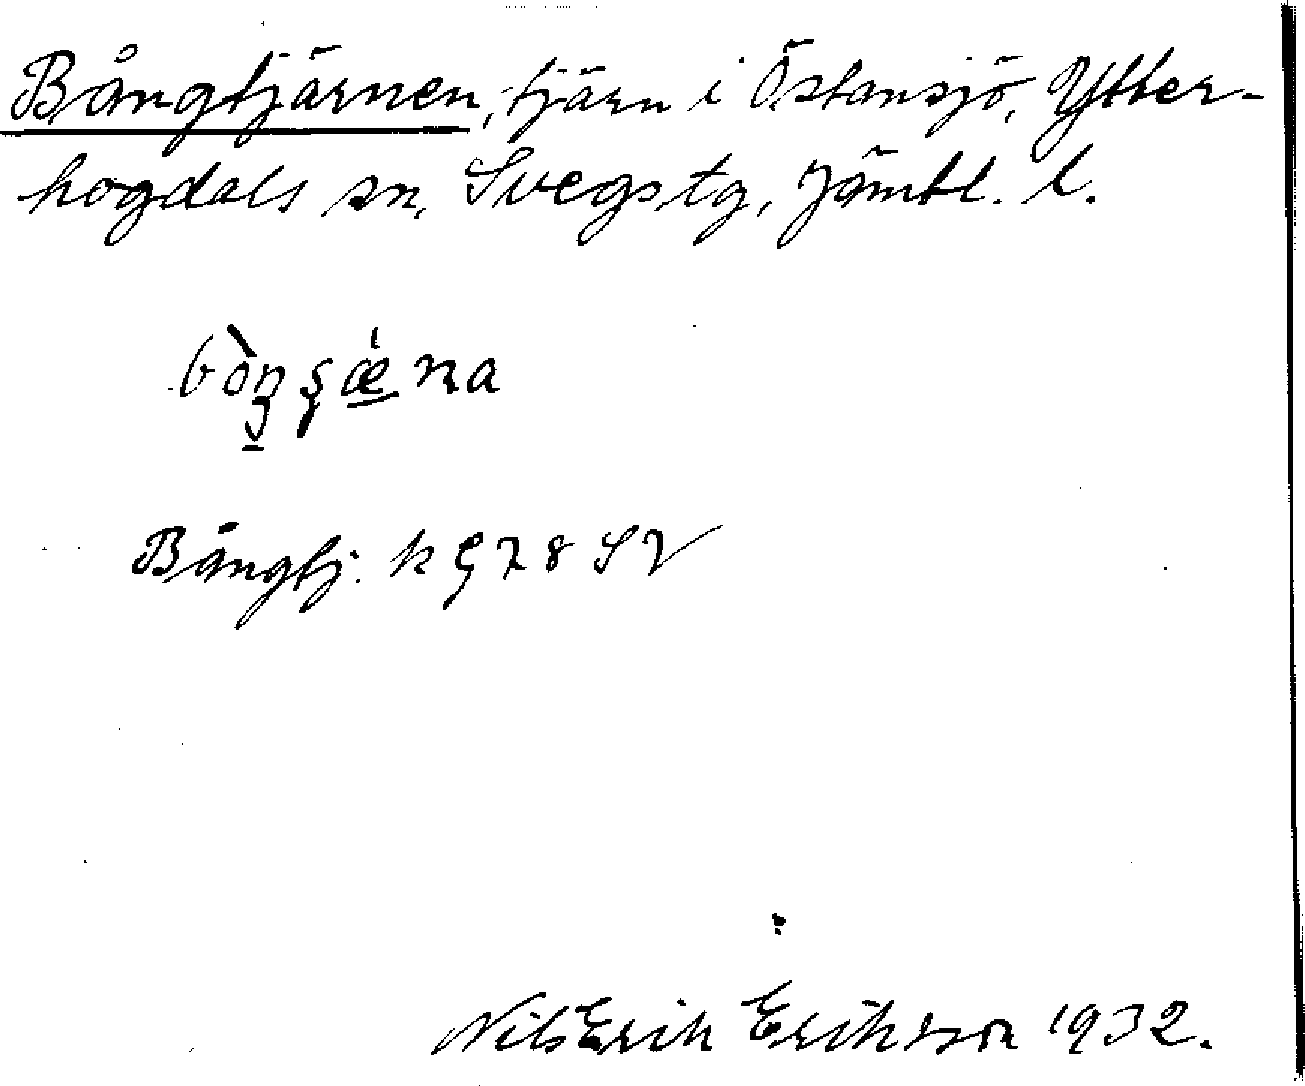 Bångtjärnen, tjärn i Östansjö, Ytter-
hogdals sn, Svegs tg, Jämtl. l.
Bångtj. k 978 SV
Nils Erik Eriksson 1932.